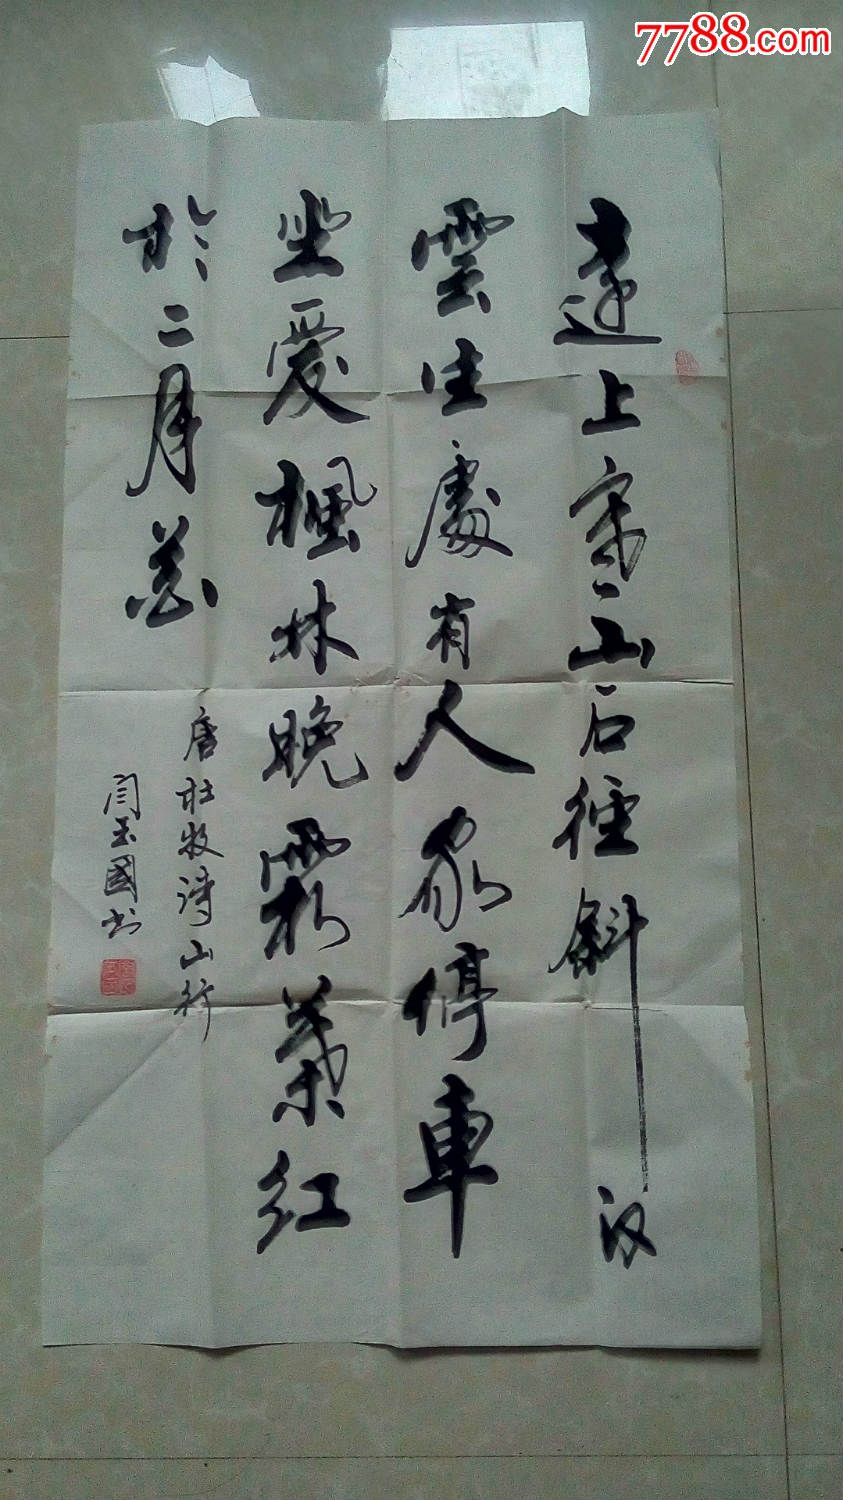 7788.com
遠上寒山石徑斜
雲生處有人家停車
坐愛楓林晚霜葉红
於二月花
唐杜牧诗山行
闫玉國书